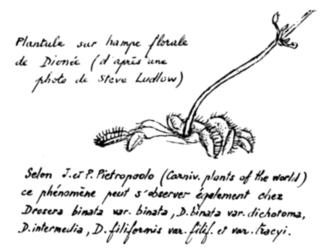 Plantule sur hampe florale
de Dionée (d'après une
photo de Steve Ludlow)
Selon J. et P. Pietropaolo (Carniv. plants of the world)
ce phénomène peut s'observer également chez
Drosera binata var. binata, D. binata var. dichotoma,
D. intermedia, D. filiformis var. filif. et var. tracyi.